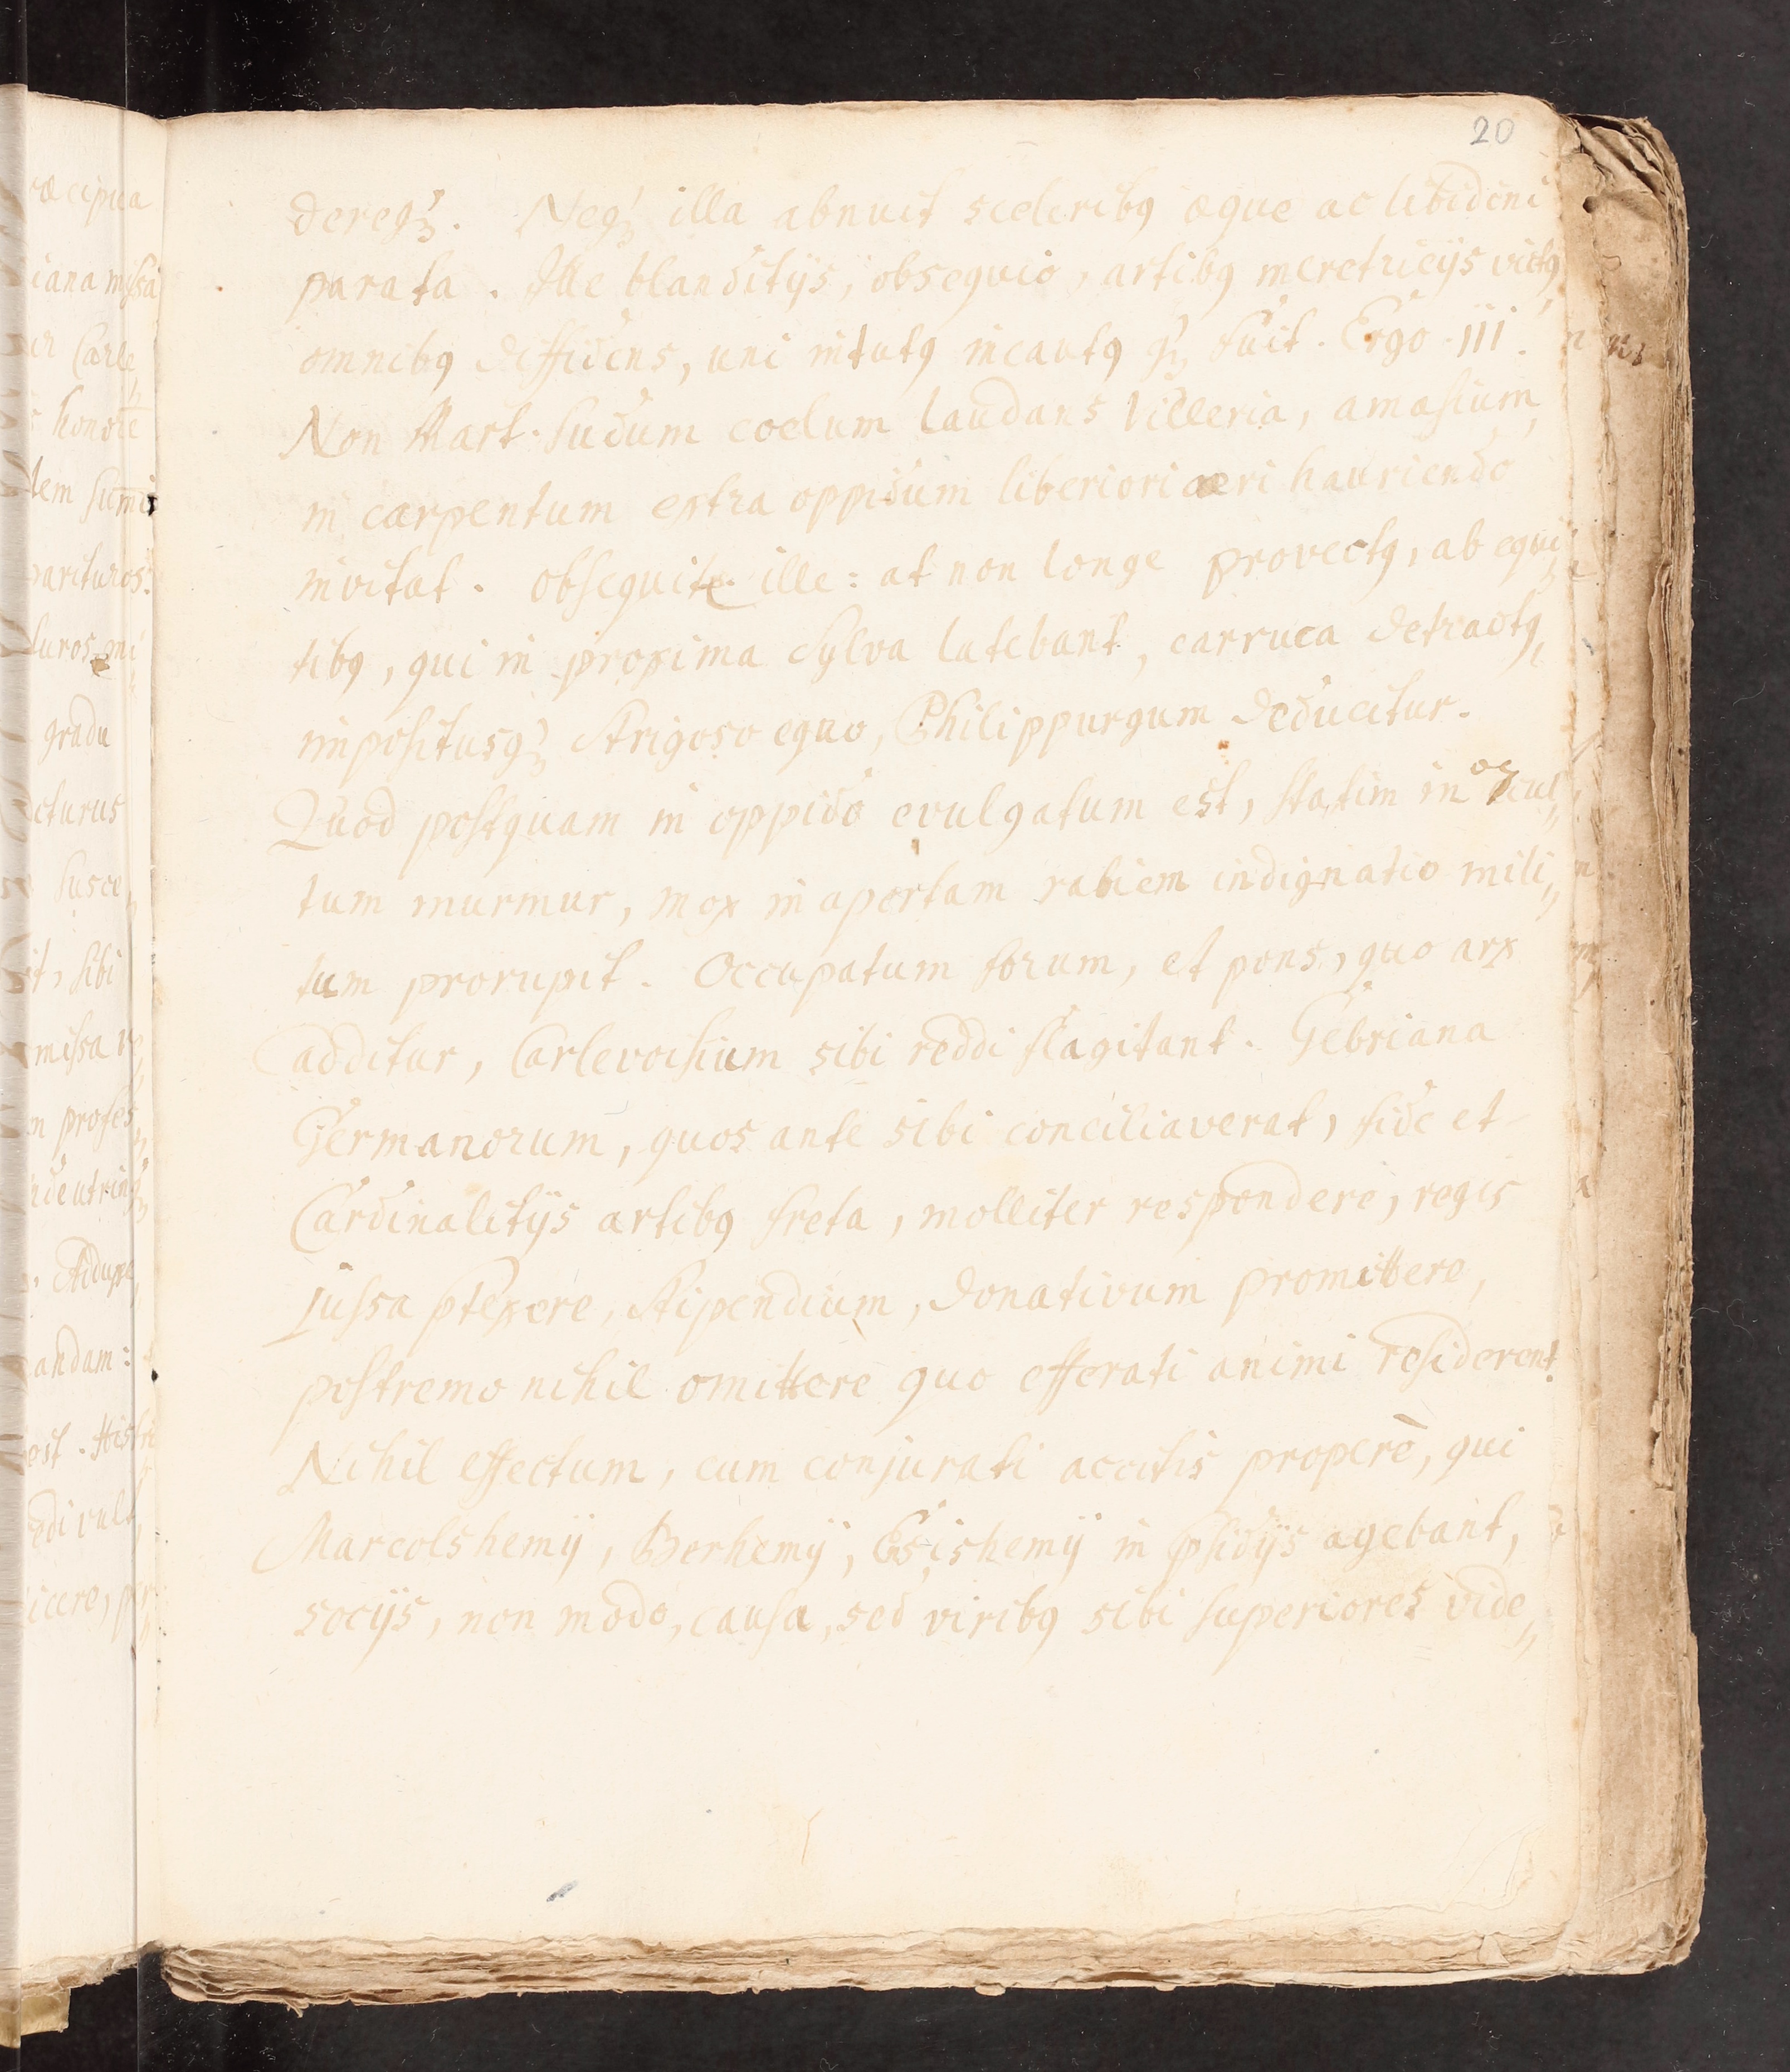 20
dereq́ꝫ. Neq́ꝫ illa abnuit sceleribꝰ æque ac libidini
parata. Ille blanditijs, obsequio, artibꝰ meretricijs victꝰ,
omnibꝰ diffidens, uni intutꝰ incautꝰ q́ꝫ fuit. Ergo III.
Non Mart. sudum coelum laudans Villeria, amasium,
in carpentum extra oppidum liberiori aeri hauriendo
invitat. Obsequitr ille: at non longe provectꝰ, ab equi,,
tibꝰ, qui in proxima sylva latebant, carruca detractꝰ,
impositusq́ꝫ strigoso equo, Philippurgum deducitur.
Quod postquam in oppido evulgatum est, statim in ocul,,
tum murmur, mox in apertam rabiem indignatio mili,,
tum prorupit. Occupatum forum, et pons, quo arx
additur, Carlevoisium sibi reddi flagitant. Gebriana
Germanorum, quos ante sibi conciliaverat, fide et
Cardinalitijs artibꝰ freta, molliter respondere, regis
jussa ptexere, stipendium, donativum promittere,
postremo nihil omittere quo efferati animi residerent.
Nihil effectum, cum conjurati accitis propere, qui
Marcolshemij, Berhemij, Ensishemij in psidijs agebant,
socijs, non modo, causa, sed viribꝰ sibi superiores vide,,